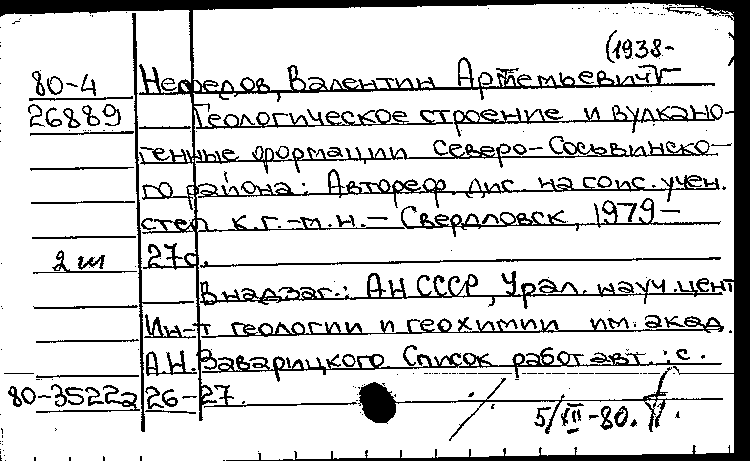 (1938-
80-4 Нефедов, Валентин Артемьевич
26889 Геологическое строение и вулкано-
генные формации Северо-Сосьвинско-
го района: Автореф. дис. на соис. учен.
степ к.г.-м.н. - Свердловск, 1979 -
2 ш 27с.
В надзаг.: АН СССР, Урал. науч. цент
Ин-т геологии и геохимии им. акад.
А.Н. Заварицкого Список работ авт.: с.
80-35222 26-27.
5/XII-80.